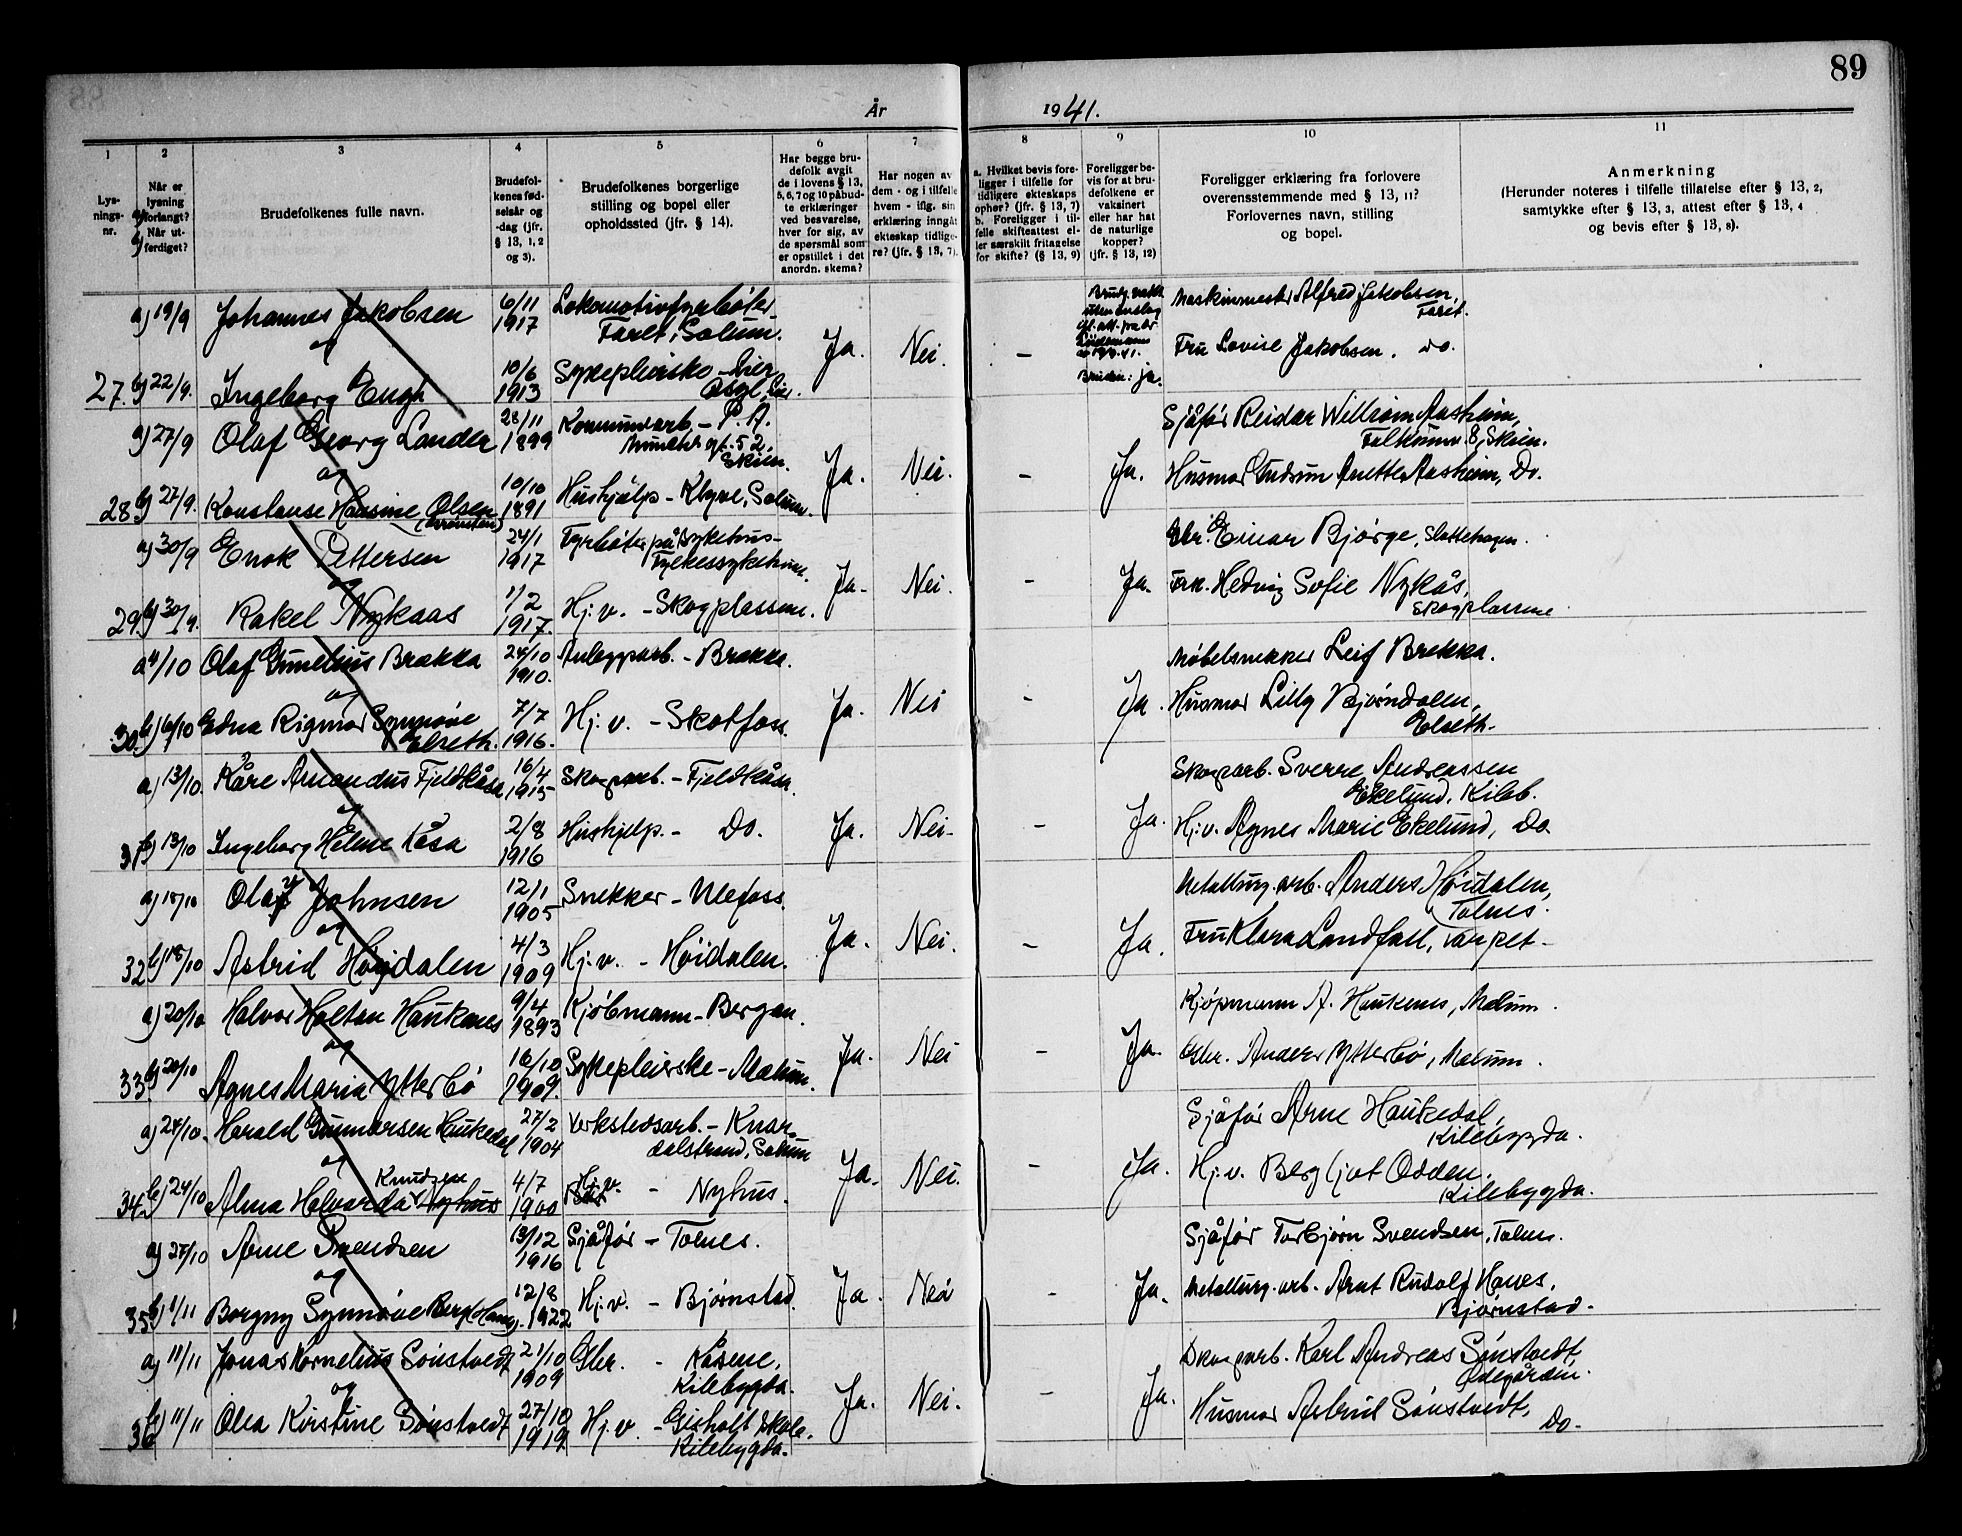 89
År 1941.
1 2 3 4 5 6 7 8 9 10 11
Lys-
nings-
nr.
Når er
lysning
forlangt?
Når ut-
ferdiget?
Brudefolkenes fulle navn.
Brudefol-
kenes fød-
selsår og
-dag (jfr.
§ 13, 1, 2
og 3).
Brudefolkenes borgerlige
stilling og bopel eller
opholdssted (jfr. § 14).
Har begge bru-
defolk avgit
de i lovens § 13,
5, 6, 7 og 10 påbud-
te erklæringer
ved besvarelse,
hver for sig, av
de spørsmål som
er opstillet i det
anordn. skema?
Har nogen av
dem - og i tilfelle
hvem - iflg. sin
erklæring inngåt
ekteskap tidlige-
re? (jfr. § 13, 7).
a. Hvilket bevis fore-
ligger i tilfelle for
tidligere ekteskaps
ophør? (jfr. § 13, 7)
b. Foreligger i til-
felle skifteattest el-
ler særskilt fritagelse
for skifte? (§ 13, 9)
Foreligger be-
vis for at bru-
defolkene er
vaksinert
eller har hat
de naturlige
kopper?
(jfr. § 13, 12)
Foreligger erklæring fra forlovere
overensstemmende med § 13, 11?
Forlovernes navn, stilling
og bopel.
Anmerkning
(Herunder noteres i tilfelle tillatelse efter § 13, 2,
samtykke efter § 13, 3, attest efter § 13, 4
og bevis efter § 13, 8).
a) 19/9 Johannes Jakobsen 6/11 1917 Lokomotivfyrbøter Faret, Solum. Ja. Nei. – Maskinmester Alfred Jakobsen, Faret.
og Fru Lovise Jakobsen. do.
27. b) 22/9. Ingeborg Engh 10/6 1913 Sykepleierske Lier Asyl, Lier. Bruden: ja.
a) 27/9 Olaf Georg Lander 28/11 1899 Kommunearb. – P. A. Munchs gt. 52, Skien. Ja. Nei. – Ja. Sjåfør Reidar William Aasheim, Falkumv. 8, Skien.
og Husmor Gudrun Anette Aasheim, Do.
28 b) 27/9. Konstanse Hansine Olsen 10/10 1891 Hushjælp – Klyve, Solum.
a) 30/9 Enok Pettersen 24/1 1917 Fyrbøter på Sykehus – Fylkessykehuset. Ja. Nei. – Ja. Gbr. Einar Bjørge, Slottehagen.
og Frk. Hedvig Sofie Nykås, Skogplassene
29. b) 30/9. Rakel Nykaas 1/2 1917. Hj. v. – Skogplassene.
a 4/10 Olaf Gunelius Brækka 24/10 1910. Anleggsarb. – Brækka. Ja. Nei – Ja. Møbelsnekker Leif Brekka.
og Husmor Lilly Bjørndalen, Elseth.
30. b) 6/10 Edna Rigmor Synnøve Elseth. 7/7 1916. Hj. v. – Skotfoss.
a) 13/10. Kåre Amandus Fjeldkåsa 16/4 1915 Skogsarb. – Fjeldkåsa. Ja. Nei – Ja. Skogsarb. Sverre Andreassen Ekelund, Kileb.
og Hj. v. Agnes Marie Ekelund, Do
31 b) 13/10 Ingeborg Helene Kåsa 2/8 1916 Hushjelp. – Do.
a) 18/10 Olaf Johnsen 12/1 1905 Snekker – Ulefoss. Ja. Nei. – Ja. Metallurg. arb. Anders Høidalen, Tolnes.
og Fru Klara Landfall, Varpet –
32 b) 18/10 Astrid Høydalen 4/3 1909 Hj. v. – Høidalen.
a) 20/10 Halvor Holtan Haukenes 9/4 1893 Kjøbmann – Bergan. Ja. Nei – Ja. Kjøpmann A. Haukenes, Melum.
og Gbr. Anders Ytterbø, Melum.
33 b) 20/10 Agnes Maria Ytterbø 16/10 1909. Sykepleierske – Melum.
a) 24/10. Harald Gunnarsen Haukedal 27/2 1904 Verkstedsarb. – Knar- dalstrand, Solum Ja. Nei. – Ja. Sjåfør Arne Haukedal, Kilebygda.
og Hj. v. Bergljot Odden, Kilebygda.
34. b) 24/10 Alma Halvarda Knudsen Nyhus 4/7 1900 Hj. v. – Nyhus.
a) 27/10 Arne Svendsen 13/12 1916 Sjåfør – Tolnes. Ja. Nei – Ja. Sjåfør Torbjørn Svendsen, Tolnes.
og Metallurg. arb. Arnt Rudolf Hanes, Bjørnstad.
35 b) 1/11 Borgny Synnøve Berg 12/8 1922 Hj. v. – Bjørnstad.
a) 11/11 Jonas Kornelius Sønstvedt 21/10 1909 Gbr. – Kåsene, Kilebygda. Ja. Nei. – Ja. Skogsarb. Karl Andreas Sønstvedt, Ødegården.
og Husmor Astrid Sønstvedt, Do.
36 b) 11/11 Olea Kirstine Sønstvedt 27/10 1919. Hj. v. – Gisholt skole, Kilebygda.